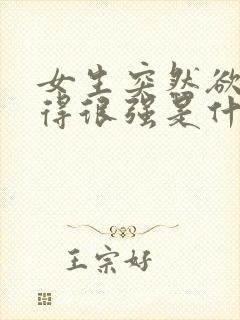 女生突然欲
得很强是什
王宗好